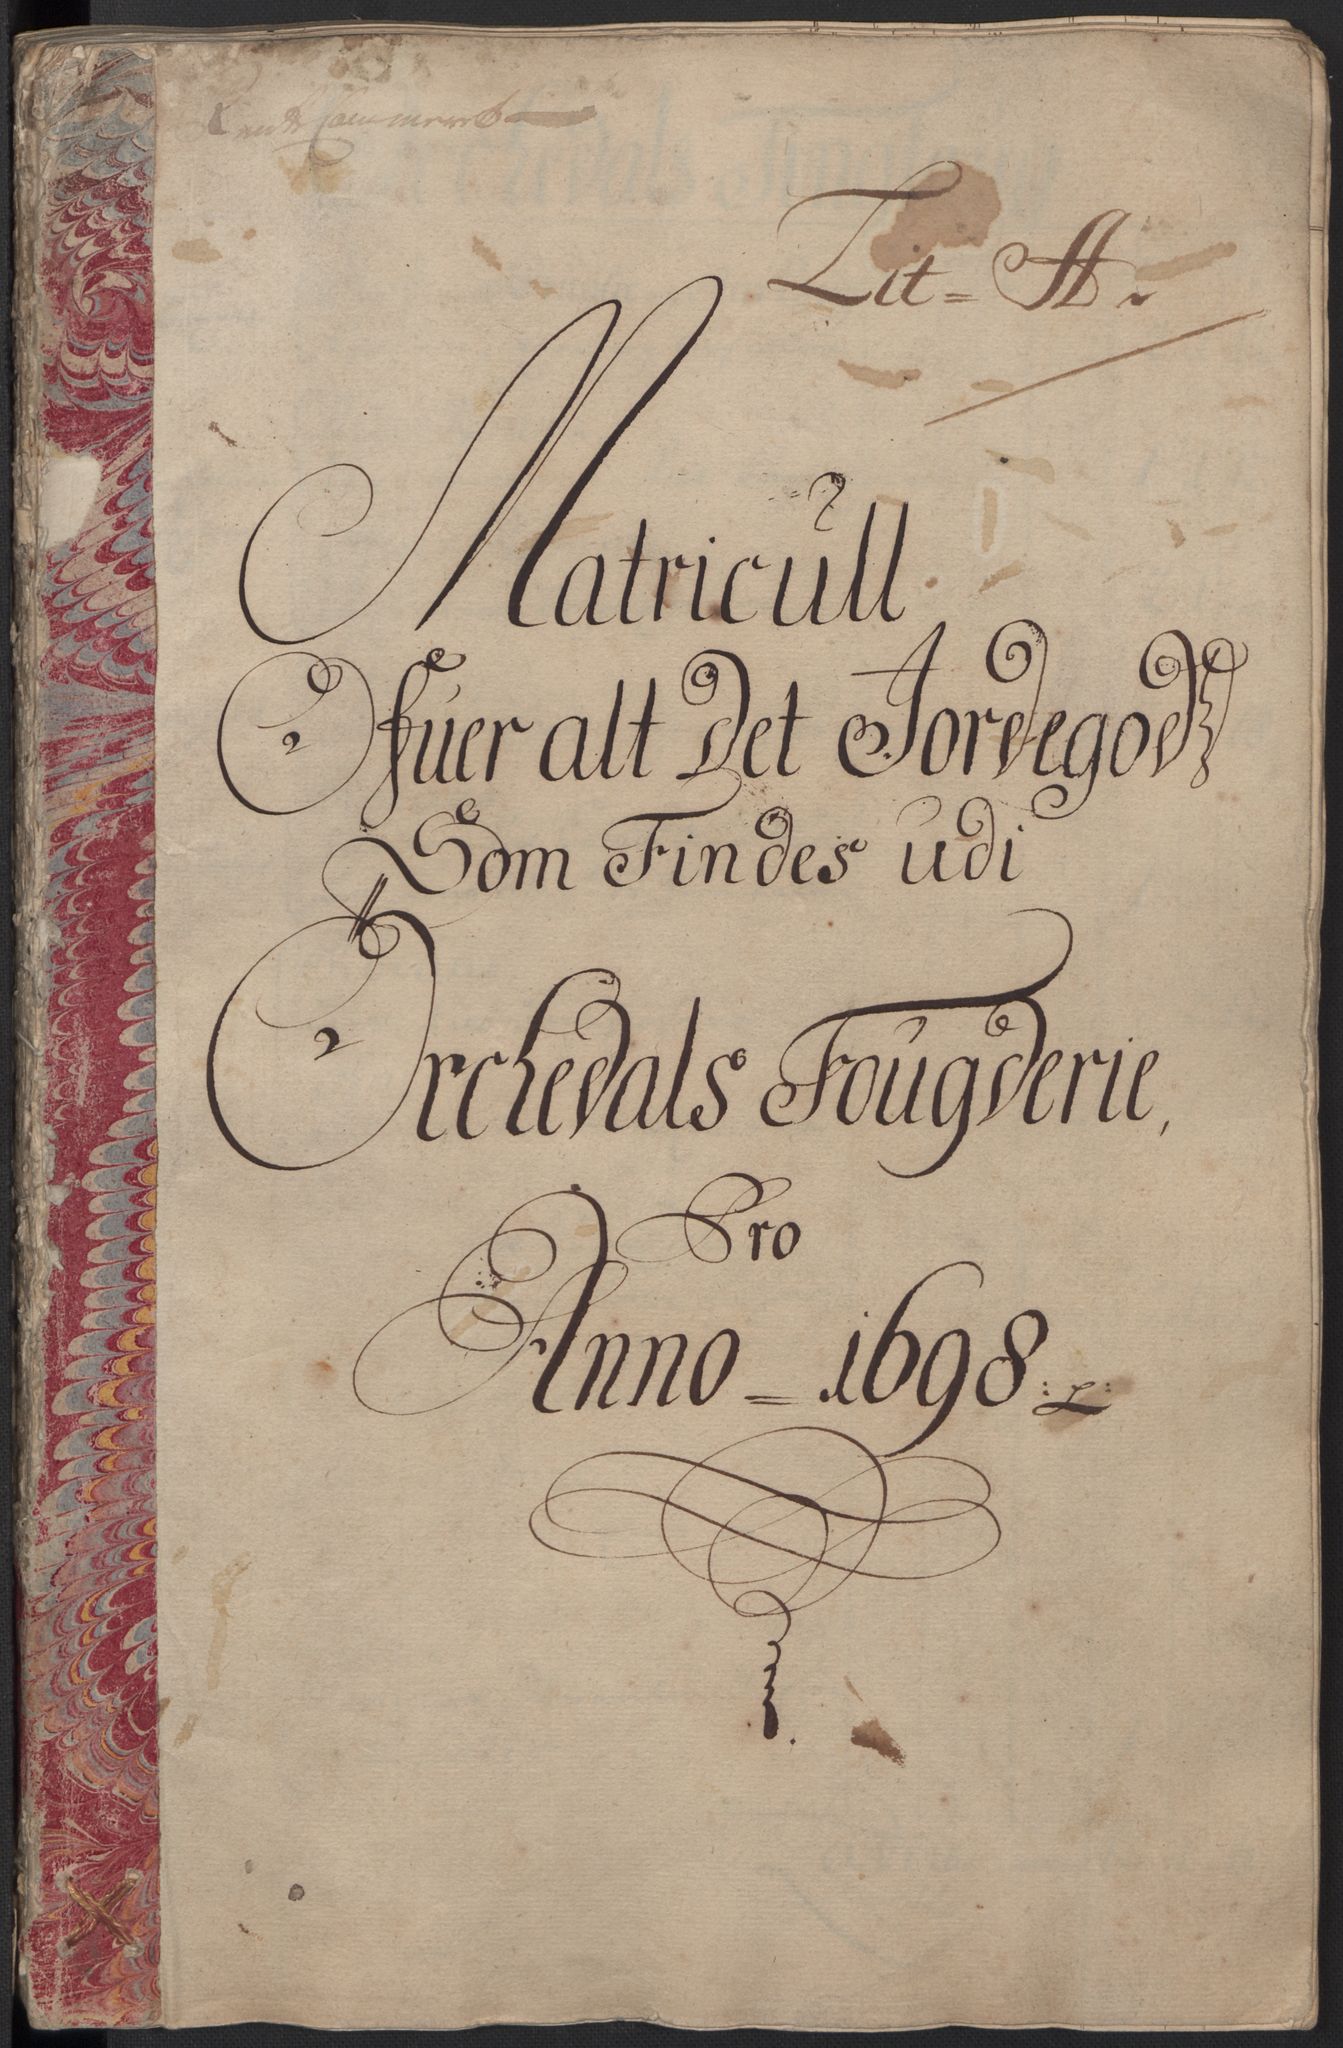 Rente Cammeret
Lit = A
Matricull
Ofuer alt Det Jordegodz
Som Findes udi
Orchedals Fougderie,
Pro
Anno = 1698